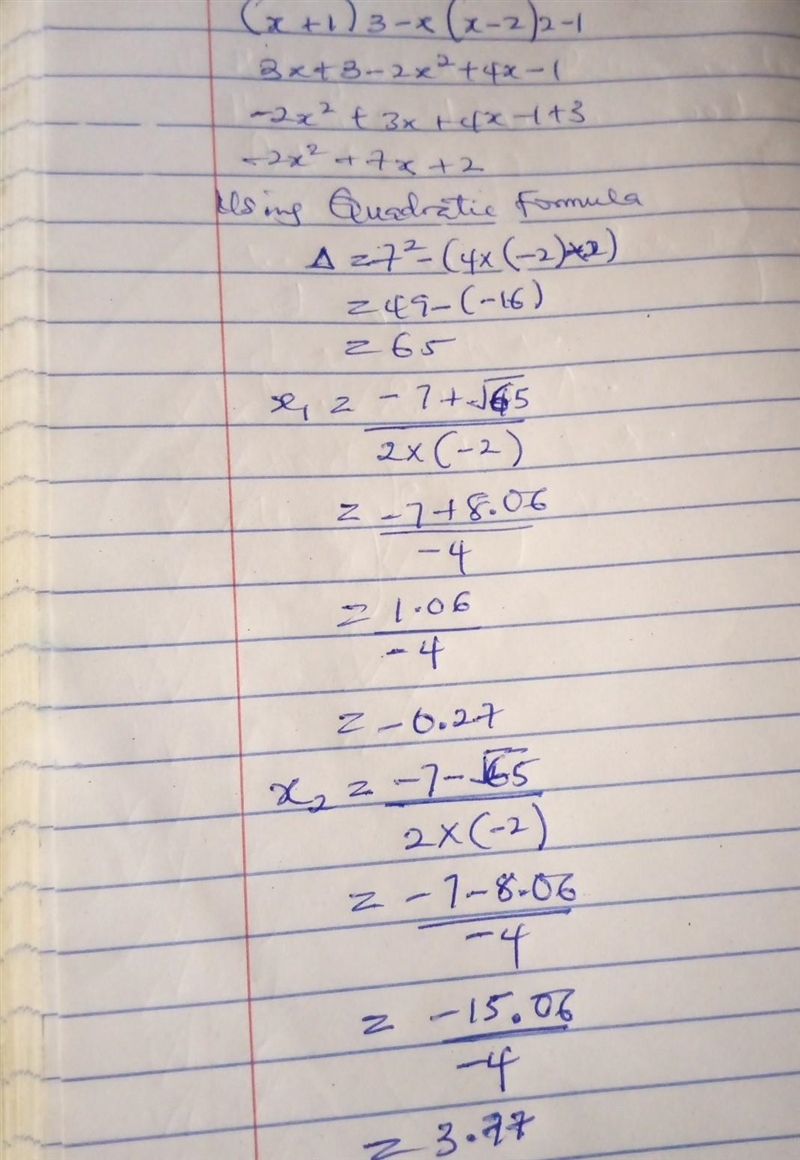 (x+1)3-x(x-2)2-1
3x+3-2x²+4x-1
-2x²+3x+4x-1+3
-2x²+7x+2
Using Quadratic Formula
Δ=7²-(4×(-2)×2)
=49-(-16)
=65
x₁ = -7+√65
2×(-2)
= -7+8.06
-4
= 1.06
-4
= -0.27
x₂ = -7-√65
2×(-2)
= -7-8.06
-4
= -15.06
-4
= 3.77